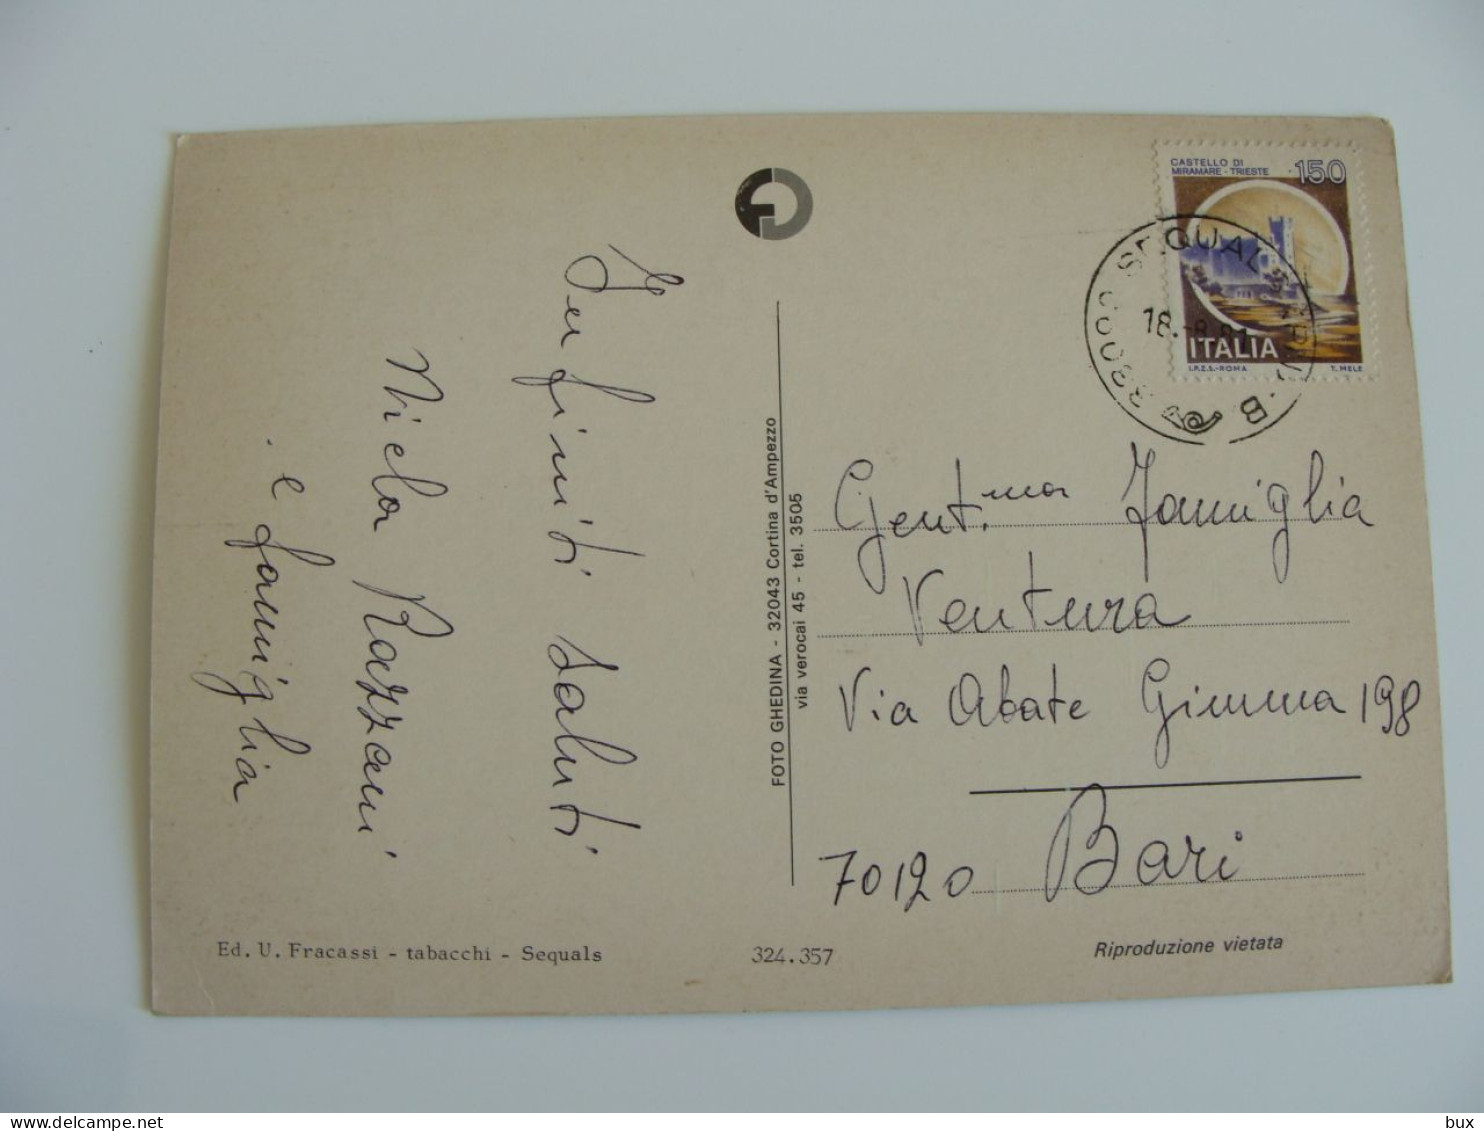 Infiniti saluti
Nicla Razzani
e famiglia
FOTO GHEDINA - 32043 Cortina d'Ampezzo
via verocai 45 - tel. 3505
CASTELLO DI
MIRAMARE - TRIESTE
150
ITALIA
I.P.Z.S.-ROMA
T. MELE
SEQUALS
18.-8.81
33090
Gent.ma Famiglia
Ventura
Via Abate Gimma 198
70120 Bari
Ed. U. Fracassi - tabacchi - Sequals
324.357
Riproduzione vietata
bux